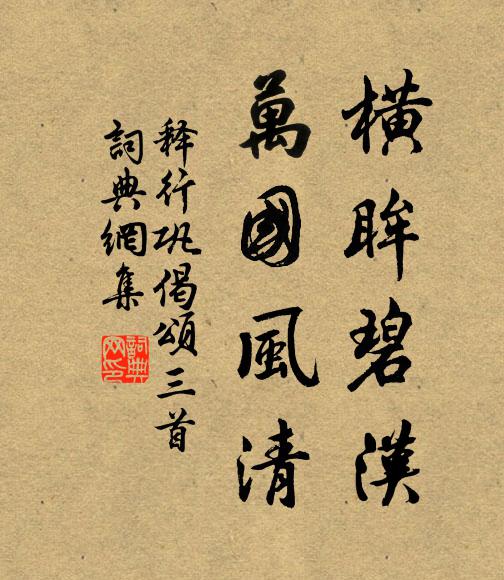 橫眸碧漢
萬國風清
释行巩偈頌三首
詞典網集
詞典网印